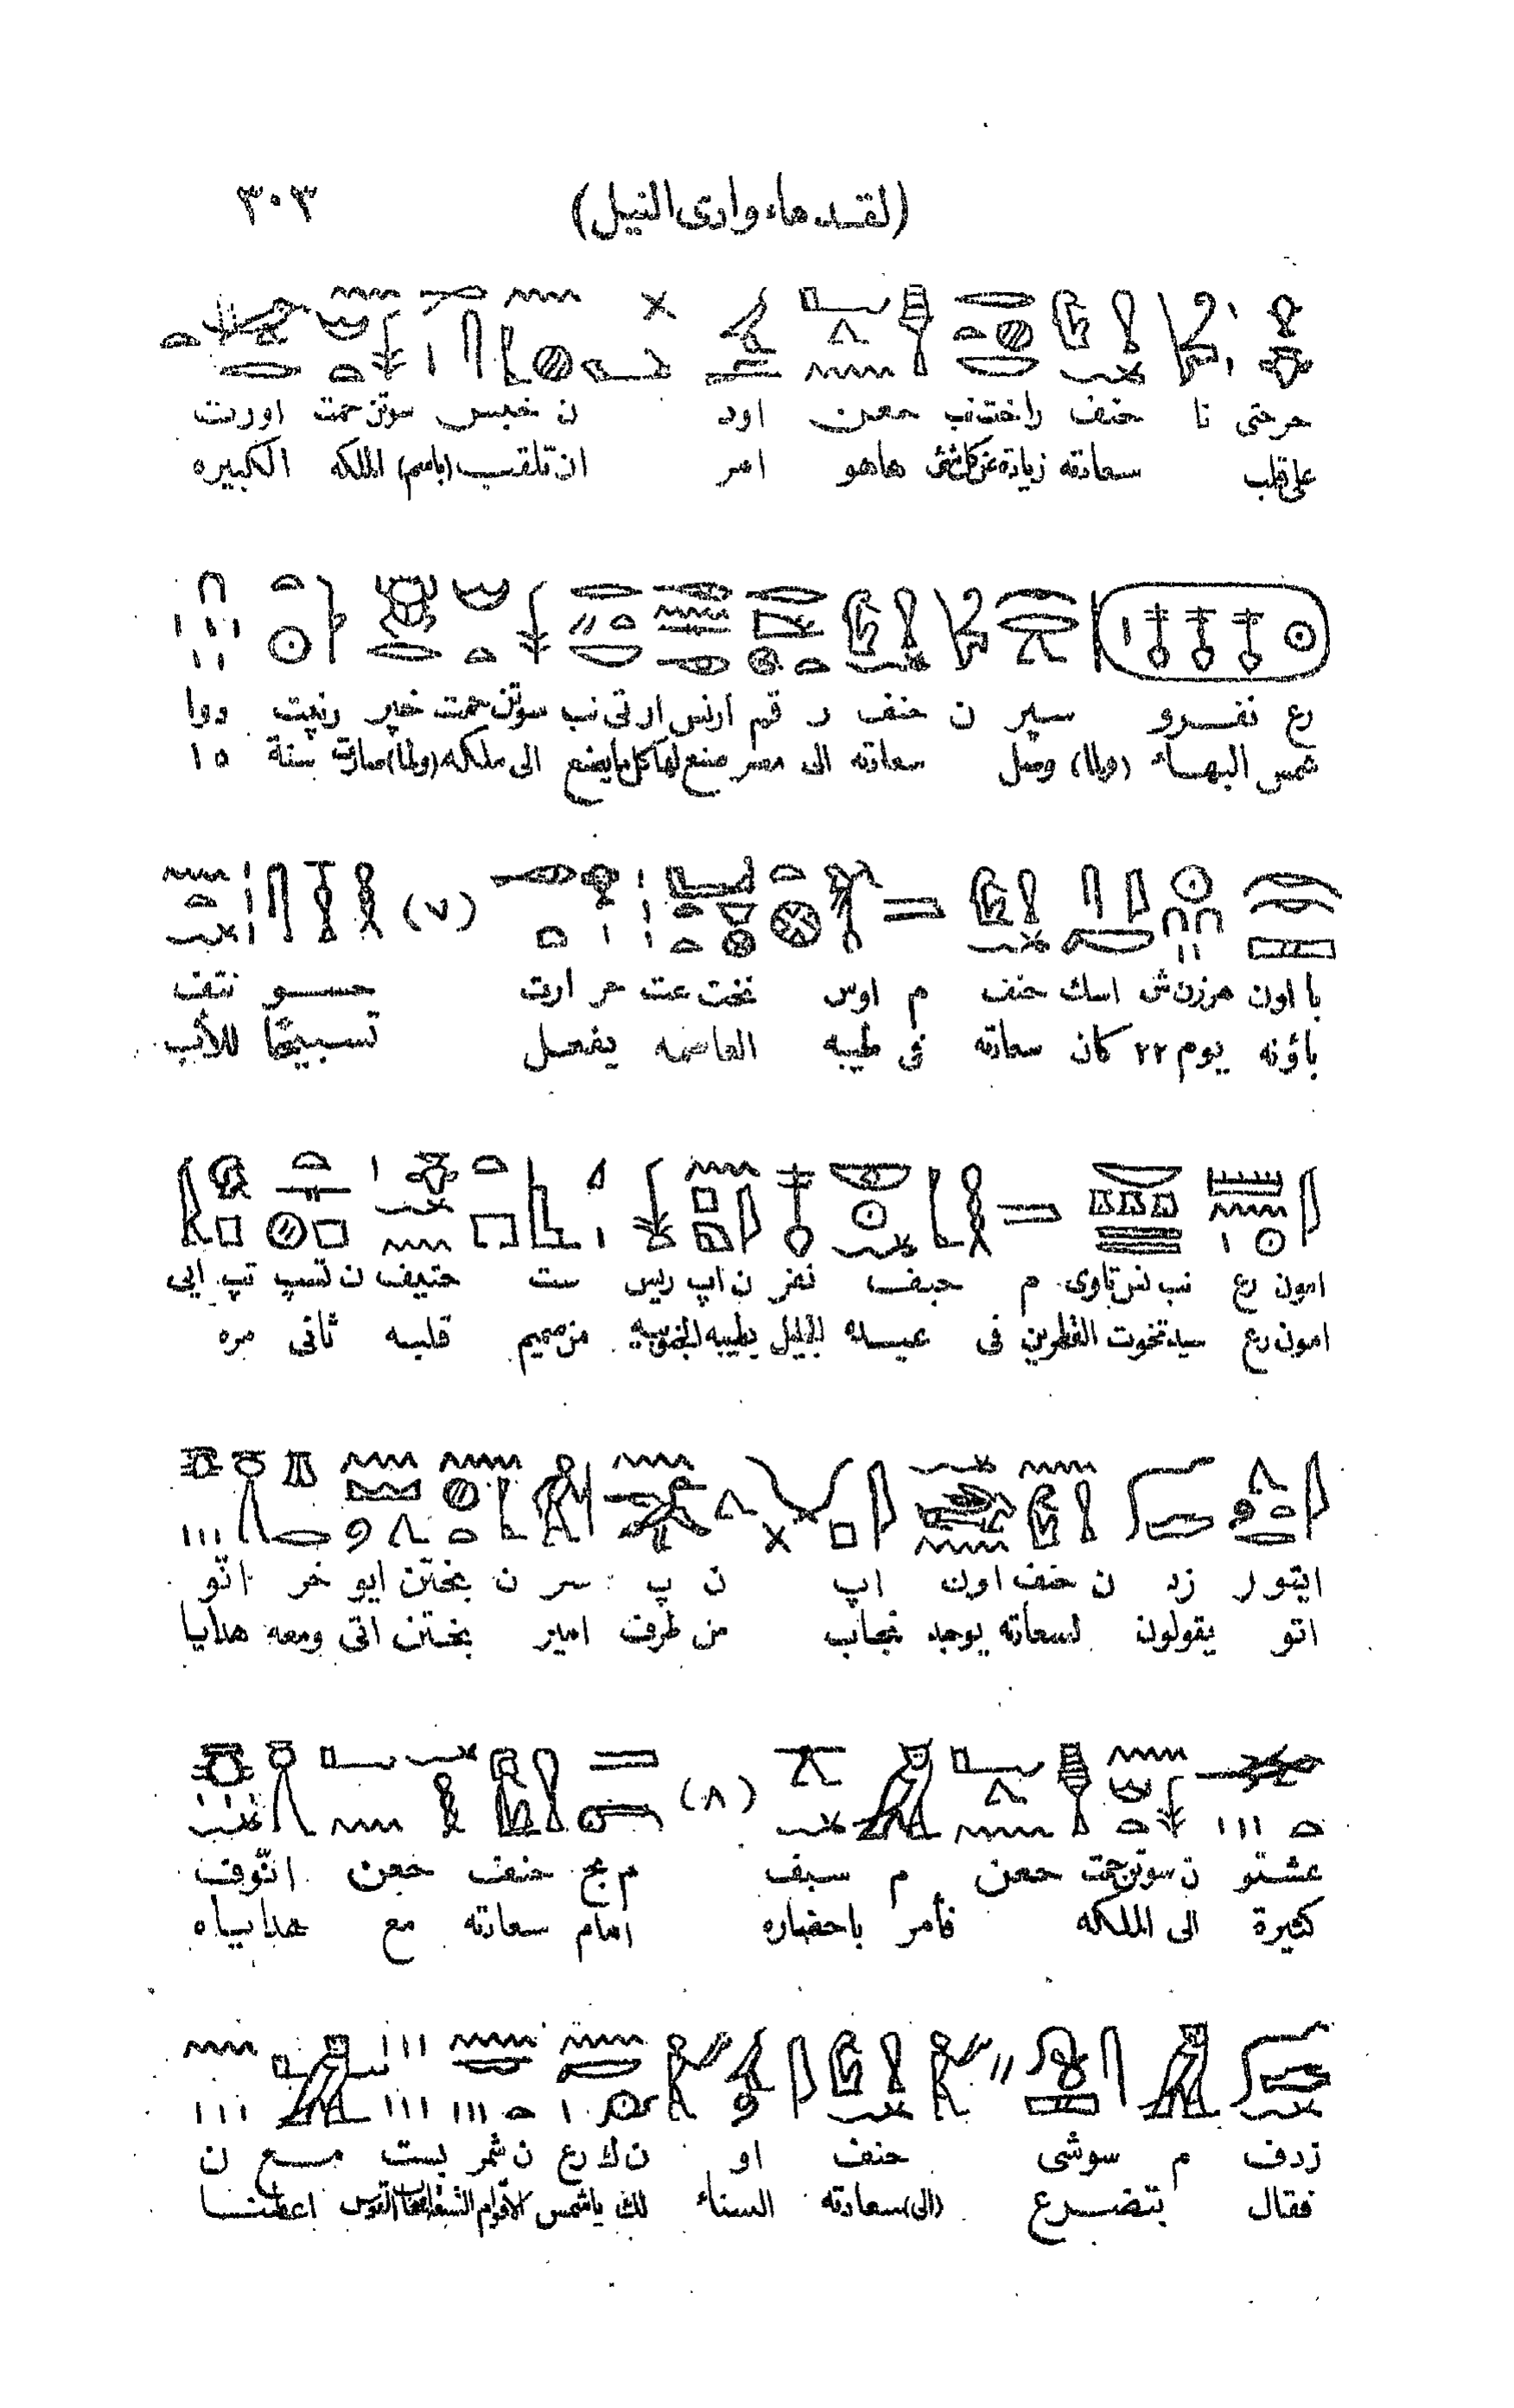 (لقدماء وادى النيل) ٣٠٣
حرحتى نا حنف راخت نب حعن اود ن خبس سوتن حمت اورت
على قلب سعادته زيادة عن كل شئ هاهو امر ان تلقب (باسم) الملكه الكبيره
رع نفرو سپر ن حنف ر قم ارنس ارتى نب سوتن حمت خپر رنپت ووا
شمس البهاء (ولما) وصل سعادته الى مصر صنع لها كل ما يصنع الى ملكه (ولما) صارت سنة ١٥
با اون هرزن ش اسك حنف م اوس نخت عت حر ارت (٧) حسو نتف
باؤنه يوم ٢٢ كان سعادته فى طيبه العاصمه يفعل تسبيحًا للأب
امون رع نب نس تاوى م حبف نفر ن اپ ريس ست حتيف ن تسپ تپ ايى
امون رع سيد تخوت القطرين فى عيده الجليل بطيبه الجنوبيه من صميم قلبه ثانى مره
ايتو ر زد ن حنف اون اپ ن پ سر ن بختن ايو خر انّو
اتو يقولون لسعادته يوجد نجاب من طرف امير بختن اتى ومعه هدايا
عشتو ن سوتن حمت حعن م سبف (٨) م بح حنف حعن انّوف
كثيرة الى الملكه فأمر باحضاره امام سعادته مع هداياه
زدف م سوشى حنف او ن لك رع ن پست مع ن
فقال بتضرع (الى) سعادته السناء لك ياشمس الاقوام اعطنا